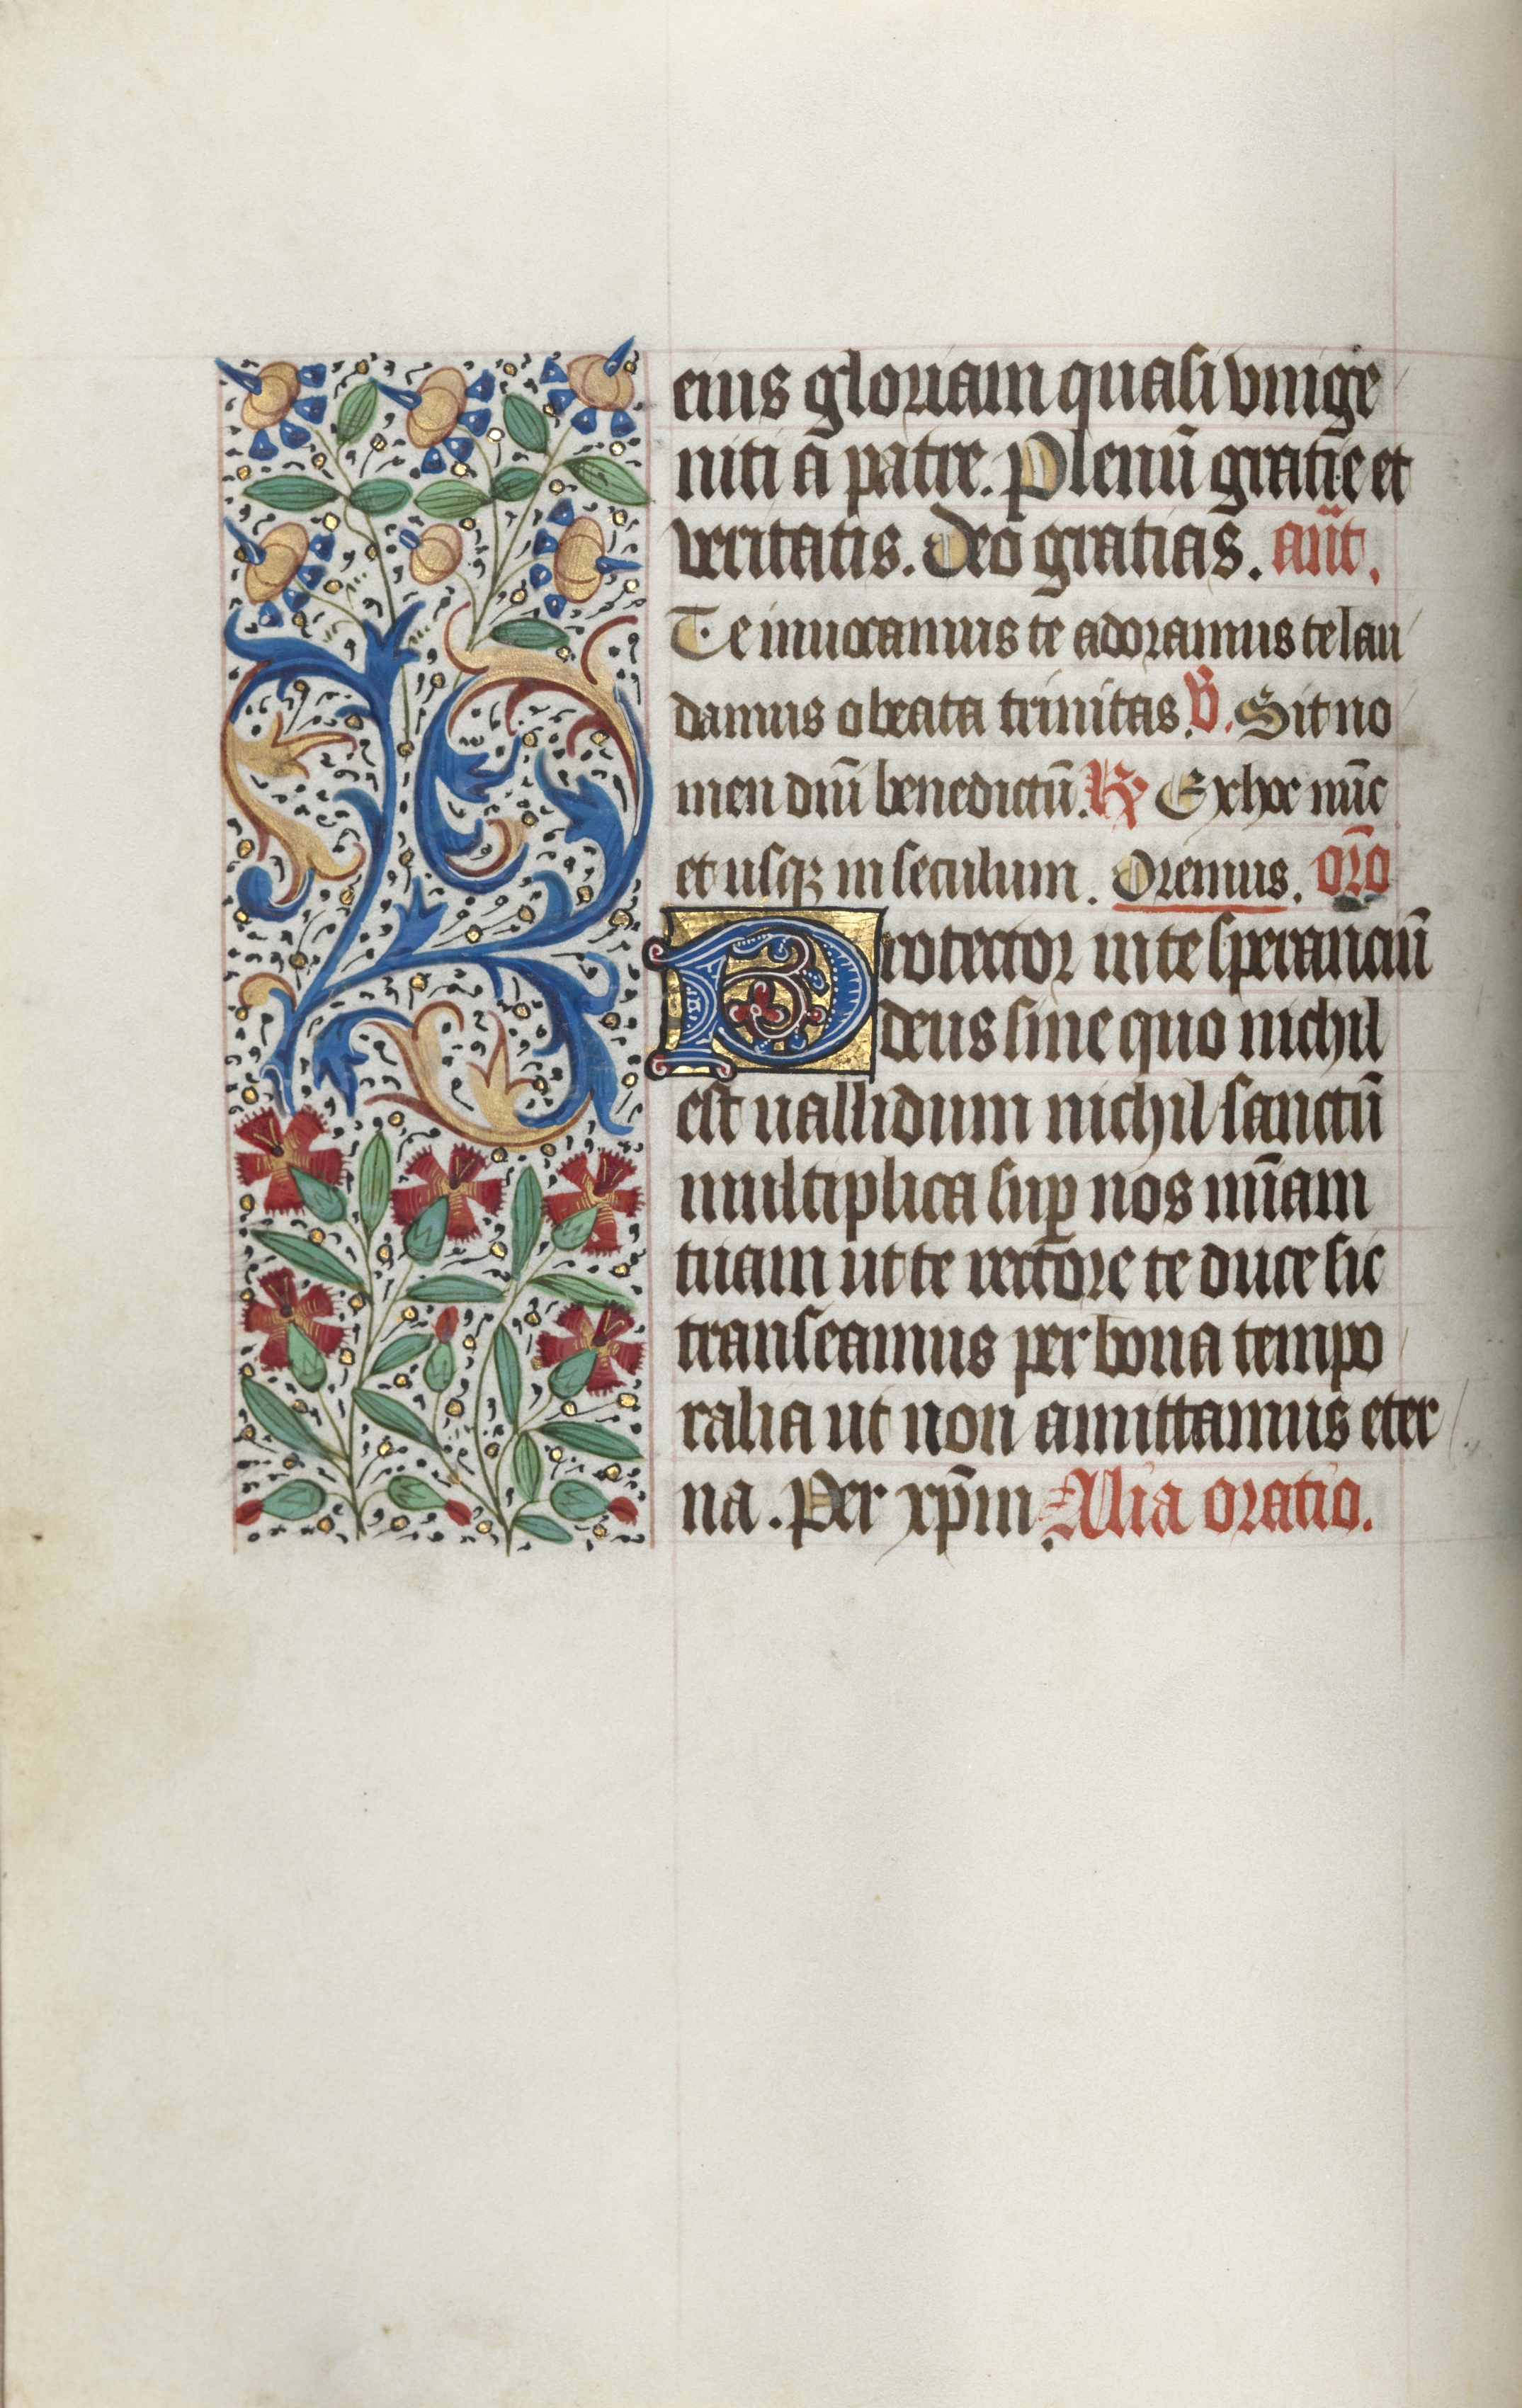 eius gloriam quasi vnige
niti a patre. Plenū gratie et
veritatis. Deo gratias. añt.
Te inuocamus te adoramus te lau
damus o beata trinitas. V. Sit no
men dñi benedictū. R Ex hoc nūc
et usqz in seculum. Oremus. orō
Protector in te speranciū
deus sine quo nichil
est uallidum nichil sanctū
multiplica sup nos mīam
tuam ut te rectore te duce sic
transeamus per bona tempo
ralia ut non amittamus eter
na. Per xp̄m Alia oratio.